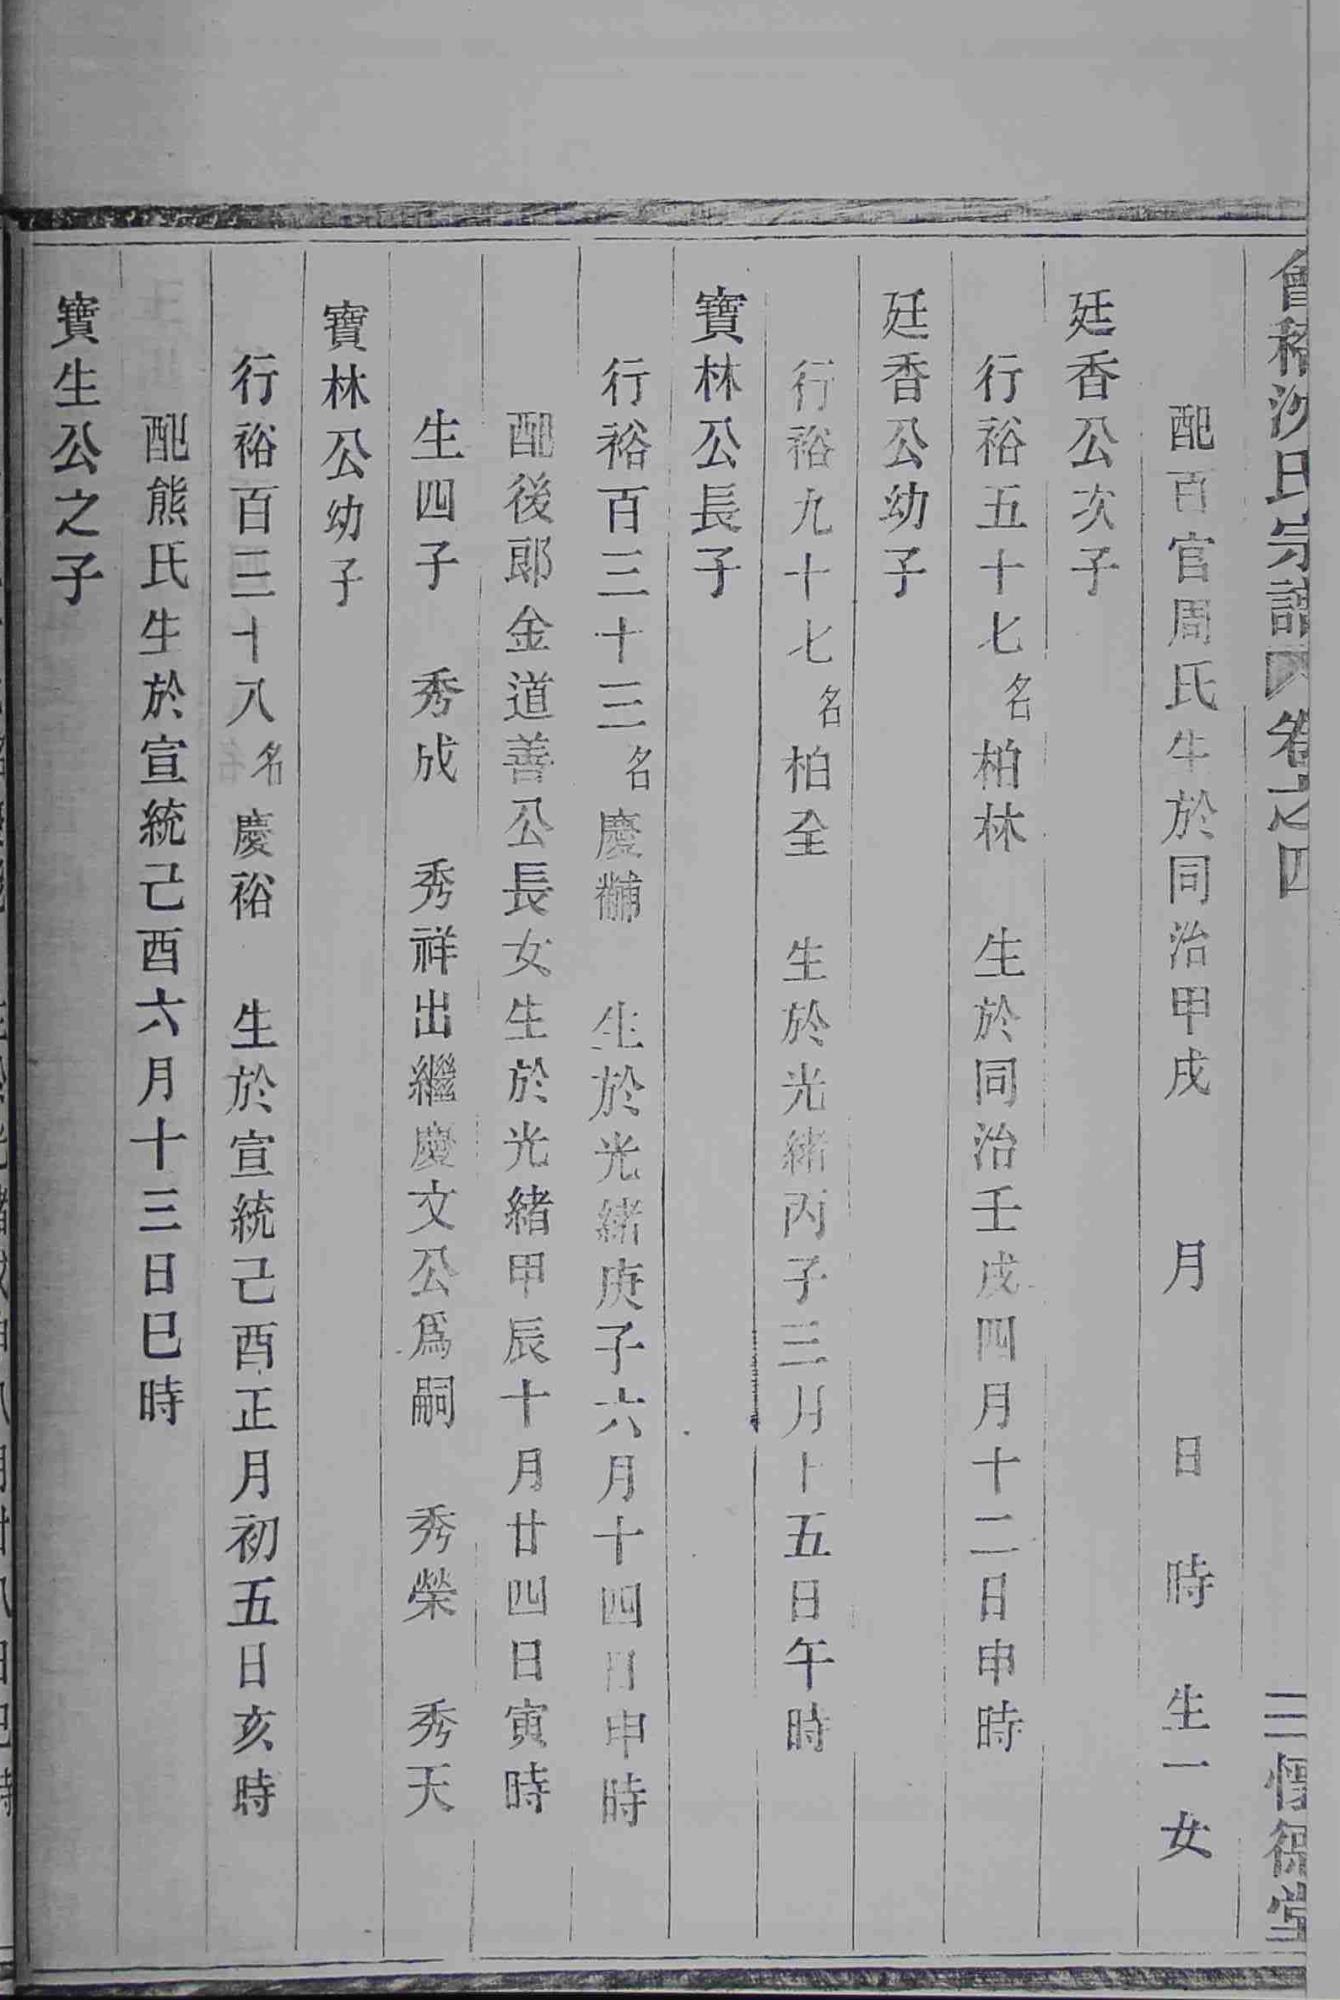 會稽沙氏宗譜 卷之四 三 惇德堂
配百官周氏生於同治甲戌 月 日 時 生一女
廷香公次子
行裕五十七名柏林 生於同治壬戌四月十二日申時
廷香公幼子
行裕九十七名柏全 生於光緒丙子三月十五日午時
寶林公長子
行裕百三十三名慶黼 生於光緒庚子六月十四日申時
配後郎金道善公長女生於光緒甲辰十月廿四日寅時
生四子 秀成 秀祥出繼慶文公爲嗣 秀榮 秀天
寶林公幼子
行裕百三十八名慶裕 生於宣統己酉正月初五日亥時
配熊氏生於宣統己酉六月十三日巳時
寶生公之子